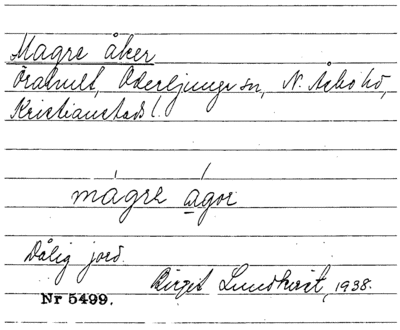 Magre åker
Örahult, Oderljunga sn, N. Åsbo hd,
Kristianstads l.
mágre ágor
Dålig jord.
Birgit Lundkvist, 1938.
Nr 5499.